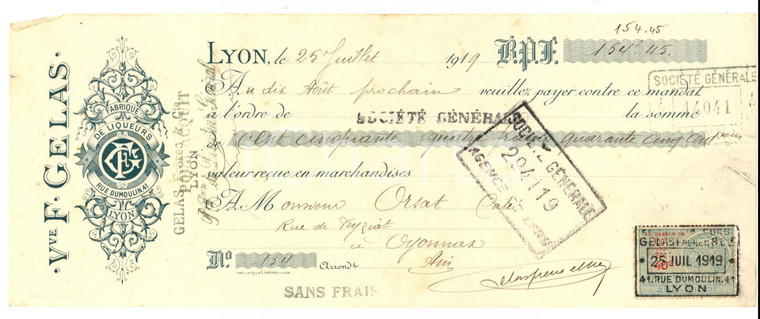 154.45
LYON, le 25 Juillet 1919 B.P.F. 154f 45.
Au dix Août prochain veuillez payer contre ce mandat
à l'ordre de SOCIÉTÉ GÉNÉRALE la somme
de Cent cinquante quatre francs quarante cinq centimes
valeur reçue en marchandises
A Monsieur Orsat Café
Rue de Veyziat
à Oyonnax
No 154 Arrondt Ain
SANS FRAIS
Vve F. GELAS.
FABRIQUE
DE LIQUEURS
RUE DUMOULIN.41
LYON
GELAS
LYON
SOCIÉTÉ GÉNÉRALE
14041
SOCIÉTÉ GÉNÉRALE
294119
AGENCE
GELAS FRÈRES
25 JUIL 1919
41. RUE DUMOULIN. 41
LYON